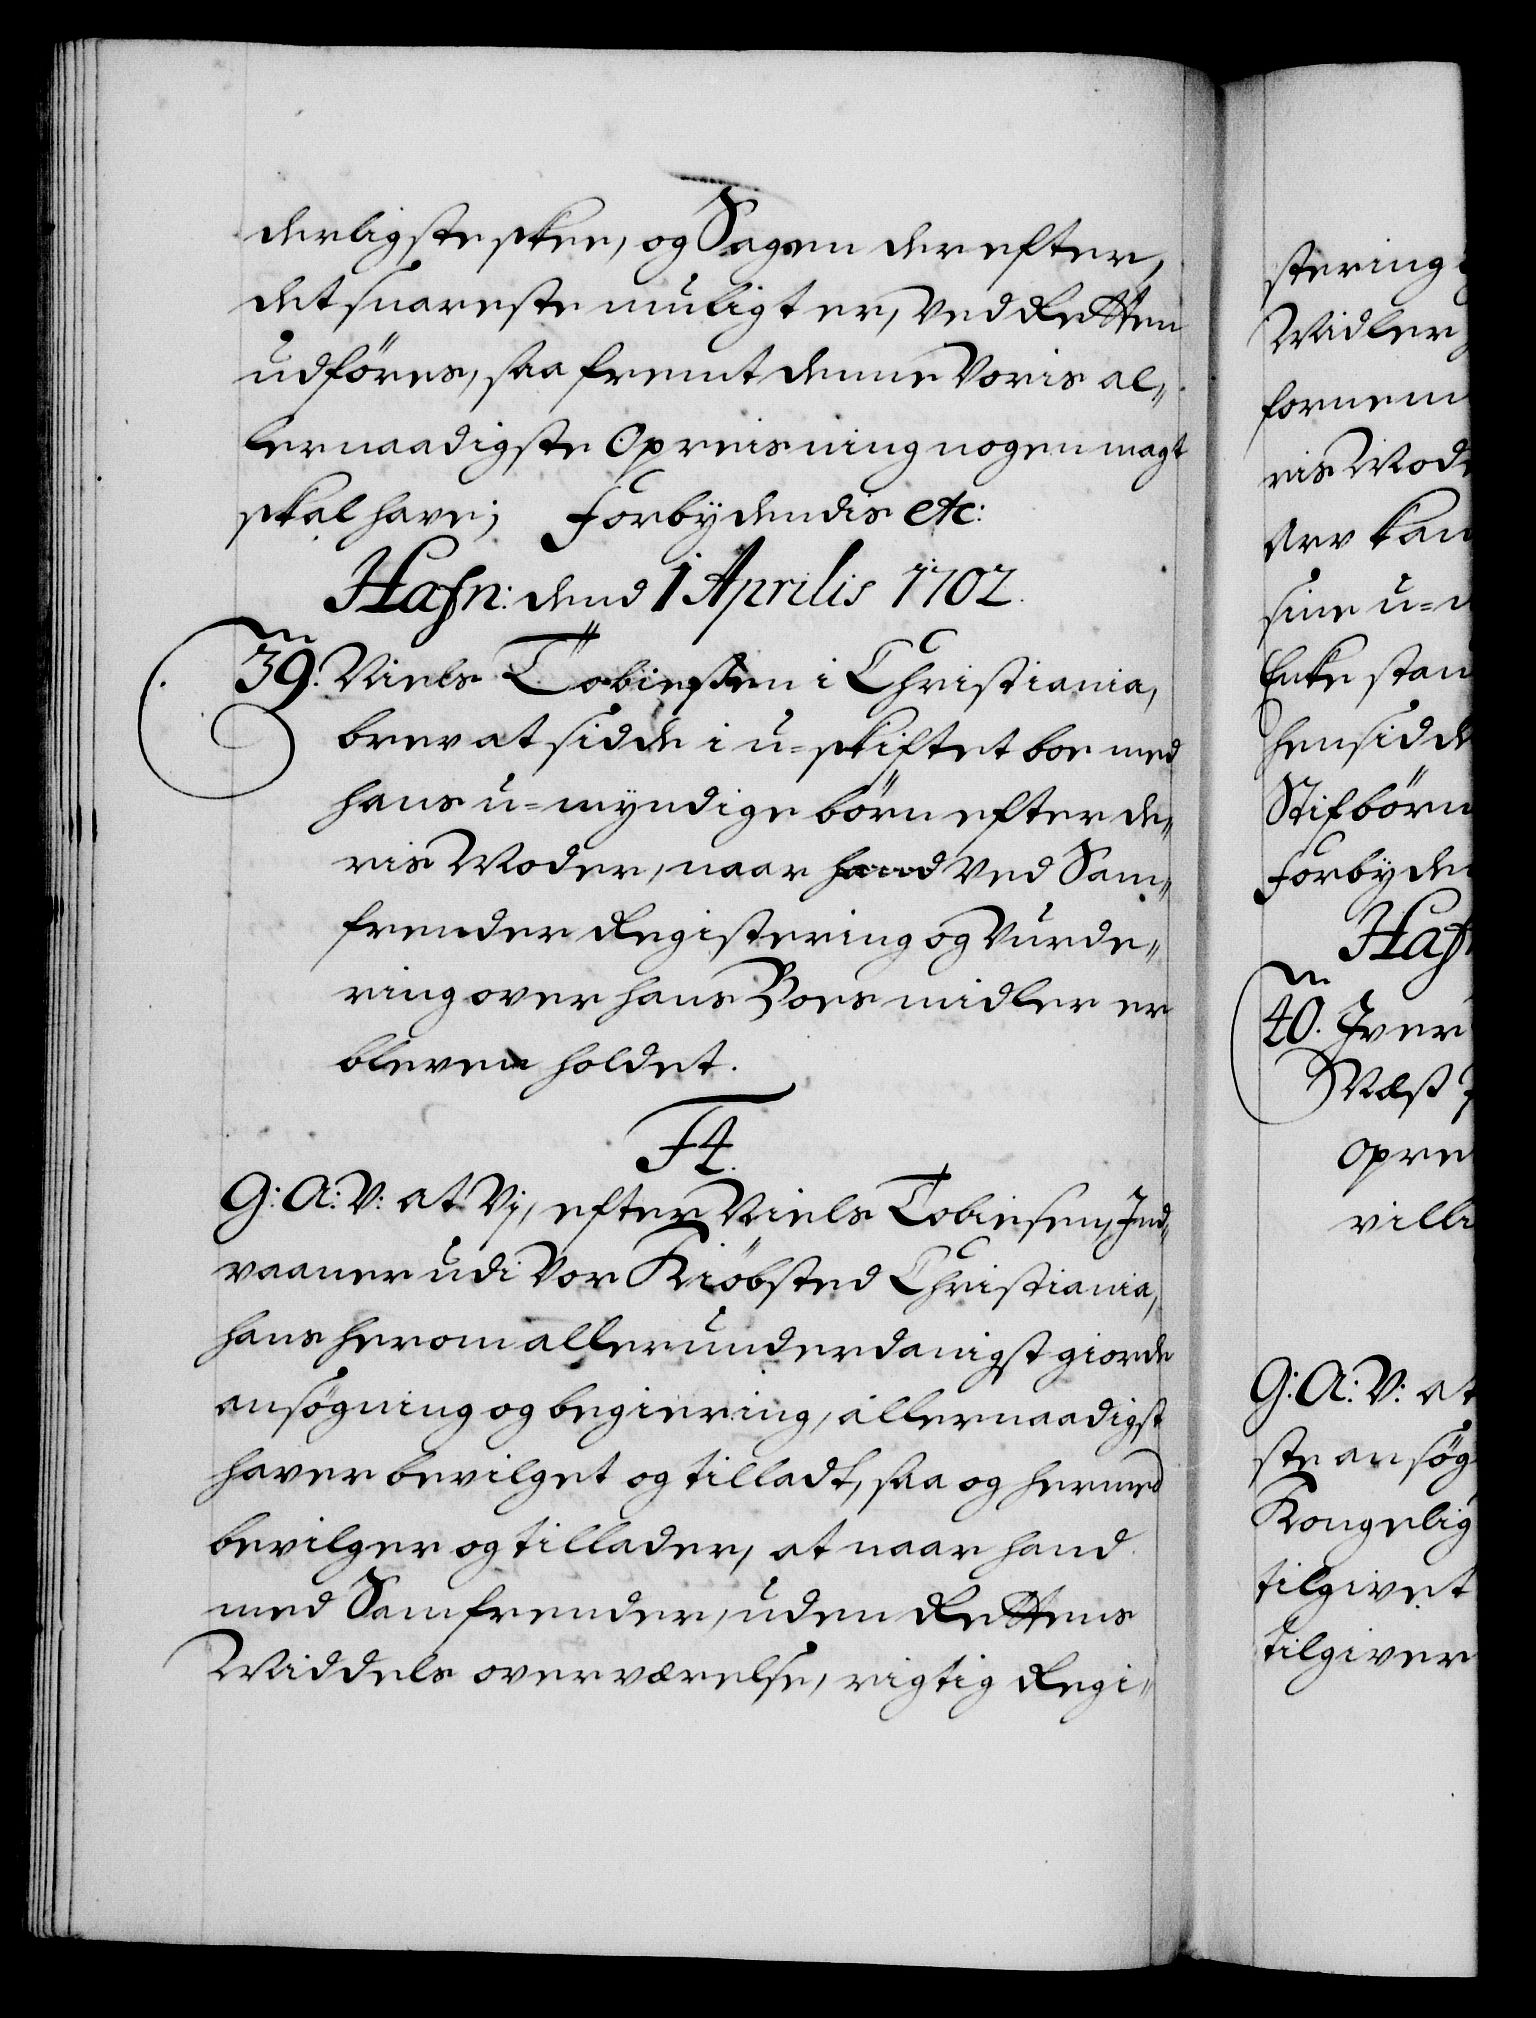 derligste skee, og Sagen derefter,
det snareste muligt er, ved Retten
udföres, saa fremt denne Voris al-
lernaadigste Opreisning nogen magt
skal have; Forbydendis etc:
Hafn: dend 1 Aprilis 1702.
39. Niels Tobiesen i Christiania,
brev at sidde i u-skiftet boe med
hans u-myndige börn efter de-
ris Moder, naar hand ved Sam-
frender Registering og Vurde-
ring over hans Boes midler er
bleven holdet.
F4.
G: A: V: at Vj, efter Niels Tobiesen, Ind-
vaaner udi Vor Kiöbsted Christiania,
hans herom allerunderdanigst giorde
ansögning og begiering, allernaadigst
haver bevilget og tilladt, saa og hermed
bevilger og tillader, at naar hand
med Samfrender, uden Rettens
Middels overværelse, rigtig Regi-
stering
Midler
fornem
ris Mod
Arv kan
sine u-
Enke stan
hensidde
Stifbörn
Forbyde
Haf
40. Iver
Næss
opre
villi
G: A: V: at
ste ansög
Kongelig
tilgivet
tilgiver